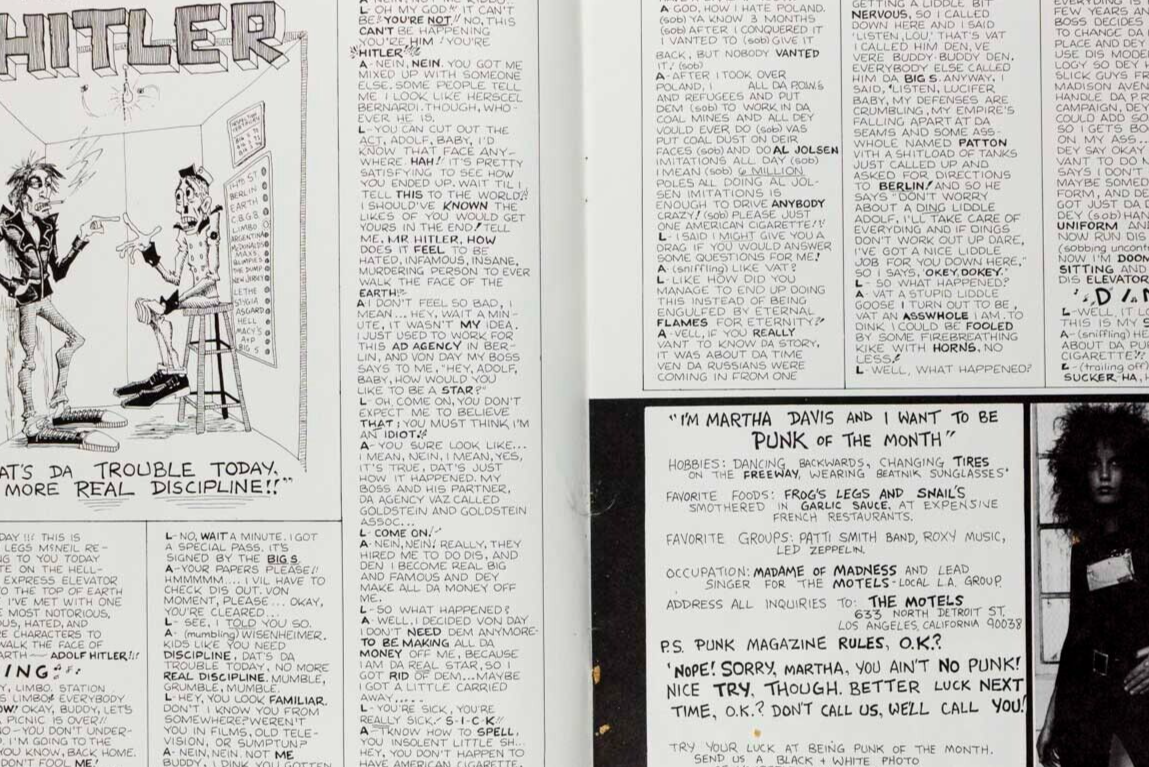 HITLER
125 ST
BERLIN
EARTH
C.B.G.B.
LIMBO
ARGENTINA
MCDONALDS
MAX'S
THE DUMP
NEW JERSEY
LETHE
STYGIA
ASGARD
HELL
MACY'S
A+P
BIG S
AT'S DA TROUBLE TODAY.
MORE REAL DISCIPLINE!!"
DAY !!! THIS IS
LEGS McNEIL RE-
NG TO YOU TODAY
TE ON THE HELL-
EXPRESS ELEVATOR
O THE TOP OF EARTH
I'VE MET WITH ONE
E MOST NOTORIOUS,
US, HATED, AND
RE CHARACTERS TO
WALK THE FACE OF
ARTH — ADOLF HITLER!!!
ING
Y, LIMBO. STATION
S LIMBO! EVERYBODY
OW! OKAY, BUDDY, LET'S
PICNIC IS OVER!!
NO - YOU DON'T UNDER-
. I'M GOING TO THE
YOU KNOW, BACK HOME.
DON'T FOOL ME!
L- NO, WAIT A MINUTE. I GOT
A SPECIAL PASS. IT'S
SIGNED BY THE BIG S.
A- YOUR PAPERS PLEASE!!
HMMMMM.... I VIL HAVE TO
CHECK DIS OUT. VON
MOMENT, PLEASE... OKAY,
YOU'RE CLEARED...
L- SEE, I TOLD YOU SO.
A- (mumbling) WISENHEIMER.
KIDS LIKE YOU NEED
DISCIPLINE. DAT'S DA
TROUBLE TODAY, NO MORE
REAL DISCIPLINE. MUMBLE,
GRUMBLE, MUMBLE.
L- HEY, YOU LOOK FAMILIAR.
DON'T I KNOW YOU FROM
SOMEWHERE? WEREN'T
YOU IN FILMS, OLD TELE-
VISION, OR SUMPTUN?
A- NEIN, NEIN. NOT ME
BUDDY, I DINK YOU GOTTEN
L- OH MY GOD!! IT CAN'T
BE!! YOU'RE NOT!! NO, THIS
CAN'T BE HAPPENING
YOU'RE HIM! YOU'RE
HITLER!!
A- NEIN, NEIN. YOU GOT ME
MIXED UP WITH SOMEONE
ELSE. SOME PEOPLE TELL
ME I LOOK LIKE HERSCEL
BERNARDI. THOUGH, WHO-
EVER HE IS.
L- YOU CAN CUT OUT THE
ACT, ADOLF, BABY, I'D
KNOW THAT FACE ANY-
WHERE. HAH!! IT'S PRETTY
SATISFYING TO SEE HOW
YOU ENDED UP. WAIT TIL I
TELL THIS TO THE WORLD!!
I SHOULD'VE KNOWN THE
LIKES OF YOU WOULD GET
YOURS IN THE END! TELL
ME, MR HITLER, HOW
DOES IT FEEL TO BE
HATED, INFAMOUS, INSANE,
MURDERING PERSON TO EVER
WALK THE FACE OF THE
EARTH?
A I DON'T FEEL SO BAD, I
MEAN... HEY, WAIT A MIN-
UTE, IT WASN'T MY IDEA.
I JUST USED TO WORK FOR
THIS AD AGENCY IN BER-
LIN, AND VON DAY MY BOSS
SAYS TO ME, "HEY, ADOLF,
BABY, HOW WOULD YOU
LIKE TO BE A STAR?"
L- OH, COME ON, YOU DON'T
EXPECT ME TO BELIEVE
THAT! YOU MUST THINK I'M
AN IDIOT!!
A- YOU SURE LOOK LIKE...
I MEAN, NEIN, I MEAN, YES,
IT'S TRUE, DAT'S JUST
HOW IT HAPPENED. MY
BOSS AND HIS PARTNER,
DA AGENCY VAZ CALLED
GOLDSTEIN AND GOLDSTEIN
ASSOC...
L- COME ON!!
A- NEIN, NEIN! REALLY, THEY
HIRED ME TO DO DIS, AND
DEN I BECOME REAL BIG
AND FAMOUS AND DEY
MAKE ALL DA MONEY OFF
ME.
L- SO WHAT HAPPENED?
A- WELL, I DECIDED VON DAY
I DON'T NEED DEM ANYMORE-
TO BE MAKING ALL DA
MONEY OFF ME, BECAUSE
I AM DA REAL STAR, SO I
GOT RID OF DEM...MAYBE
I GOT A LITTLE CARRIED
AWAY....
L- YOU'RE SICK, YOU'RE
REALLY SICK! S-I-C-K!!
A- I KNOW HOW TO SPELL,
YOU INSOLENT LITTLE SH...
HEY, YOU DON'T HAPPEN TO
HAVE AMERICAN CIGARETTE,
A- GOD, HOW I HATE POLAND.
(sob) YA KNOW 3 MONTHS
(sob) AFTER I CONQUERED IT
I WANTED TO (sob) GIVE IT
BACK, BUT NOBODY WANTED
IT! (sob)
A- AFTER I TOOK OVER
POLAND, I ALL DA P.O.W.S
AND REFUGEES AND PUT
DEM (sob) TO WORK IN DA
COAL MINES AND ALL DEY
VOULD EVER DO (sob) VAS
PUT COAL DUST ON DEIR
FACES (sob) AND DO AL JOLSEN
IMITATIONS ALL DAY (sob)
I MEAN (sob) 6 MILLION
POLES ALL DOING AL JOL-
SEN IMITATIONS IS
ENOUGH TO DRIVE ANYBODY
CRAZY! (sob) PLEASE JUST
ONE AMERICAN CIGARETTE!!
L- I SAID I MIGHT GIVE YOU A
DRAG IF YOU WOULD ANSWER
SOME QUESTIONS FOR ME!
A- (sniffling) LIKE VAT?
L- LIKE HOW DID YOU
MANAGE TO END UP DOING
THIS INSTEAD OF BEING
ENGULFED BY ETERNAL
FLAMES FOR ETERNITY?
A- VELL, IF YOU REALLY
VANT TO KNOW DA STORY,
IT WAS ABOUT DA TIME
VEN DA RUSSIANS WERE
COMING IN FROM ONE
GETTING A LIDDLE BIT
NERVOUS, SO I CALLED
DOWN HERE AND I SAID
'LISTEN, LOU,' THAT'S VAT
I CALLED HIM DEN, VE
VERE BUDDY-BUDDY DEN.
EVERYBODY ELSE CALLED
HIM DA BIG S. ANYWAY, I
SAID, "LISTEN, LUCIFER
BABY, MY DEFENSES ARE
CRUMBLING, MY EMPIRE'S
FALLING APART AT DA
SEAMS AND SOME ASS-
WHOLE NAMED PATTON
WITH A SHITLOAD OF TANKS
JUST CALLED UP AND
ASKED FOR DIRECTIONS
TO BERLIN! AND SO HE
SAYS "DON'T WORRY
ABOUT A DING LIDDLE
ADOLF, I'LL TAKE CARE OF
EVERYTHING AND IF DINGS
DON'T WORK OUT UP DARE,
I'VE GOT A NICE LIDDLE
JOB FOR YOU DOWN HERE,"
SO I SAYS, 'OKEY, DOKEY.'
L- SO WHAT HAPPENED?
A- VAT A STUPID LIDDLE
GOOSE I TURN OUT TO BE,
VAT AN ASSWHOLE I AM. TO
DINK I COULD BE FOOLED
BY SOME FIREBREATHING
KIKE WITH HORNS. NO
LESS!
L- WELL, WHAT HAPPENED?
EVERYTHING IS
FEW YEARS AN
BOSS DECIDES
TO CHANGE DA I
PLACE AND DEY
USE DIS MODE
LOGY SO DEY H
SLICK GUYS FR
MADISON AVEN
HANDLE DA P.R
CAMPAIGN, DEY
COULD ADD SO
SO I GETS BO
ON MY ASS...
DEY SAY OKAY
VANT TO DO N
SAYS I DON'T
MAYBE SOMED
FORM, AND DE
GOT JUST DA D
DEY (sob) HAN
UNIFORM AN
NOW RUN DIS
(sobbing uncont
NOW I'M DOOM
SITTING AND
DIS ELEVATOR
DIN
L- WELL, IT LO
THIS IS MY S
A- (sniffling) HE
ABOUT DA PU
CIGARETTE?!
L- (trailing off)
SUCKER, HA, H
"I'M MARTHA DAVIS AND I WANT TO BE
PUNK OF THE MONTH"
HOBBIES: DANCING BACKWARDS, CHANGING TIRES
ON THE FREEWAY, WEARING BEATNIK SUNGLASSES'
FAVORITE FOODS: FROG'S LEGS AND SNAIL'S
SMOTHERED IN GARLIC SAUCE, AT EXPENSIVE
FRENCH RESTAURANTS.
FAVORITE GROUPS: PATTI SMITH BAND, ROXY MUSIC,
LED ZEPPELIN.
OCCUPATION: MADAME OF MADNESS AND LEAD
SINGER FOR THE MOTELS - LOCAL L.A. GROUP.
ADDRESS ALL INQUIRIES TO: THE MOTELS
633 NORTH DETROIT ST.
LOS ANGELES, CALIFORNIA 90038
P.S. PUNK MAGAZINE RULES, O.K.?
'NOPE! SORRY, MARTHA, YOU AIN'T NO PUNK!
NICE TRY, THOUGH. BETTER LUCK NEXT
TIME, O.K.? DON'T CALL US, WE'LL CALL YOU!
TRY YOUR LUCK AT BEING PUNK OF THE MONTH.
SEND US A BLACK + WHITE PHOTO